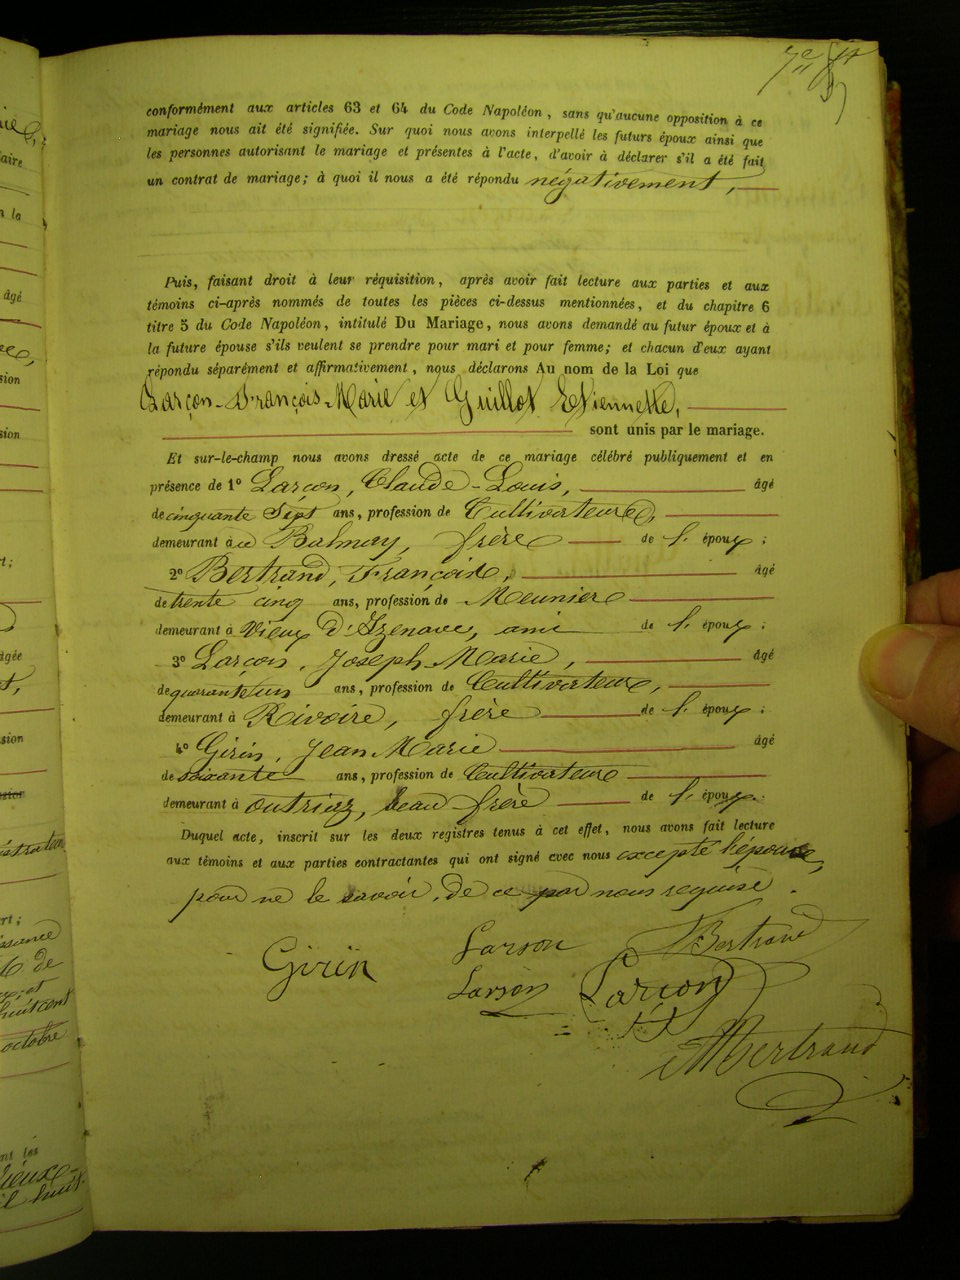 7e
conformément aux articles 63 et 64 du Code Napoléon, sans qu'aucune opposition à ce
mariage nous ait été signifiée. Sur quoi nous avons interpellé les futurs époux ainsi que
les personnes autorisant le mariage et présentes à l'acte, d'avoir à déclarer s'il a été fait
un contrat de mariage; à quoi il nous a été répondu négativement,
Puis, faisant droit à leur réquisition, après avoir fait lecture aux parties et aux
témoins ci-après nommés de toutes les pièces ci-dessus mentionnées, et du chapitre 6
titre 5 du Code Napoléon, intitulé Du Mariage, nous avons demandé au futur époux et à
la future épouse s'ils veulent se prendre pour mari et pour femme; et chacun d'eux ayant
répondu séparément et affirmativement, nous déclarons Au nom de la Loi que
Larçon François-Marie et Guillot Etiennette,
sont unis par le mariage.
Et sur-le-champ nous avons dressé acte de ce mariage célébré publiquement et en
présence de 1º Larçon, Claude-Louis, âgé
de cinquante sept ans, profession de Cultivateur,
demeurant à Balmay, frère de l'époux;
2º Bertrand, François, âgé
de trente cinq ans, profession de Meunier
demeurant à Vieux d'Izenave, ami de l'époux;
3º Larçon, Joseph-Marie, âgé
de quarante un ans, profession de Cultivateur,
demeurant à Rivoire, frère de l'époux;
4º Girin, Jean Marie âgé
de soixante ans, profession de Cultivateur
demeurant à outriaz, beau-frère de l'époux.
Duquel acte, inscrit sur les deux registres tenus à cet effet, nous avons fait lecture
aux témoins et aux parties contractantes qui ont signé avec nous excepté l'épouse,
pour ne le savoir, de ce par nous requise.
Girin Larson Bertrand
Larson Larçon
Bertrand